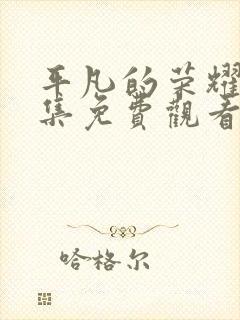 平凡的荣耀
集免費觀看
哈格尔